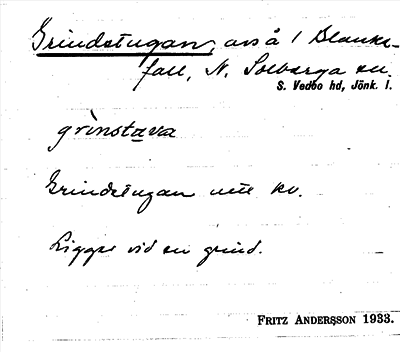 Grindstugan, avs å / Blanke-
fall, N. Solberga sn.
S. Vedbo hd, Jönk. l.
grinstava
Grindstugan ute kv.
Ligger vid en grind.
FRITZ ANDERSSON 1933.